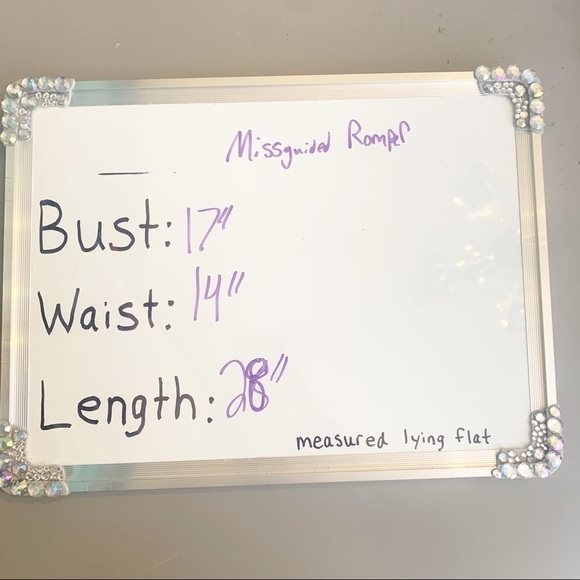 Missguided Romper
Bust: 17"
Waist: 14"
Length: 28"
measured lying flat